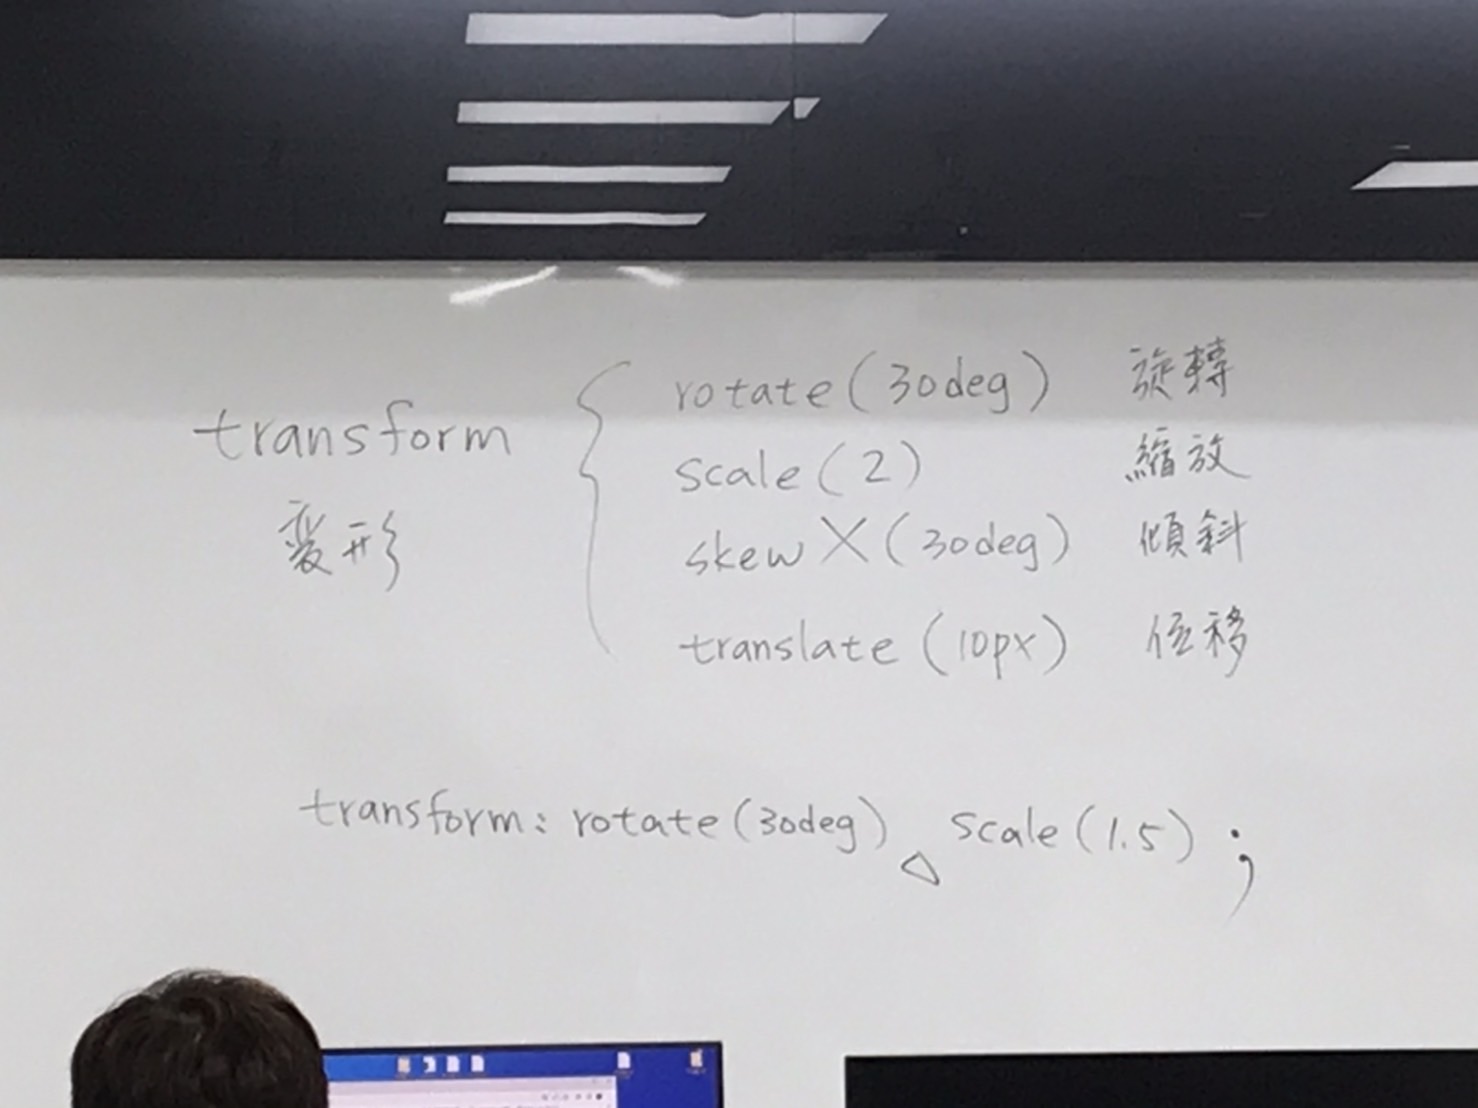 transform
変形
rotate(30deg) 旋轉
scale(2) 縮放
skewX(30deg) 傾斜
translate(10px) 位移
transform: rotate(30deg)△scale(1.5);